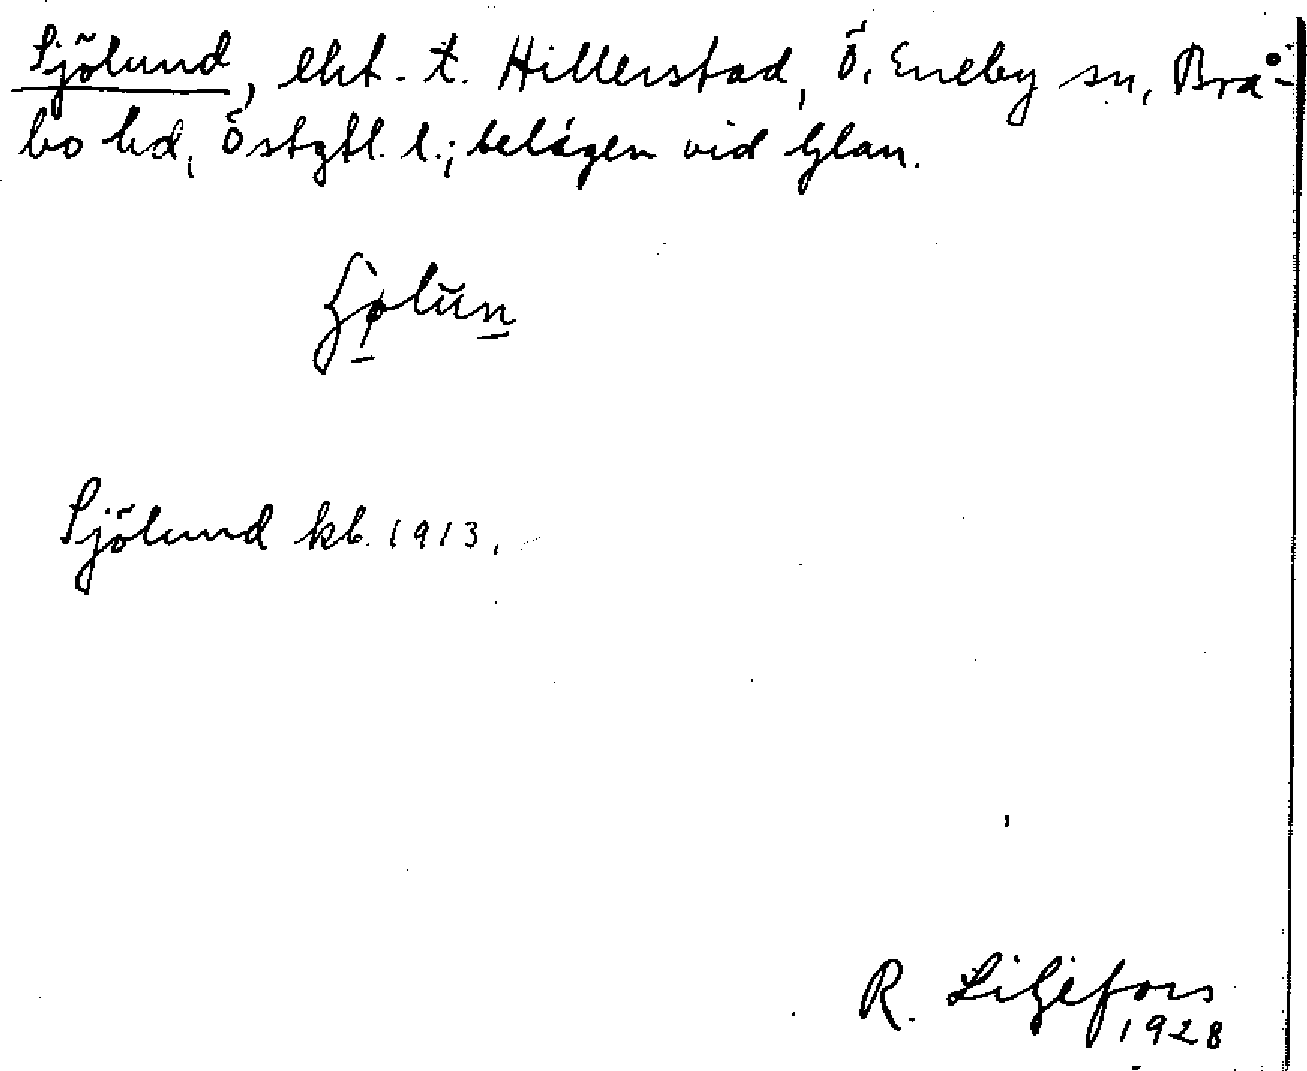 Sjölund, eht. t. Hillerstad, Ö. Eneby sn, Brå-
bo hd, Östgtl. l.; belägen vid Glan.
Sjölund kb. 1913.
R. Liljefors
1928